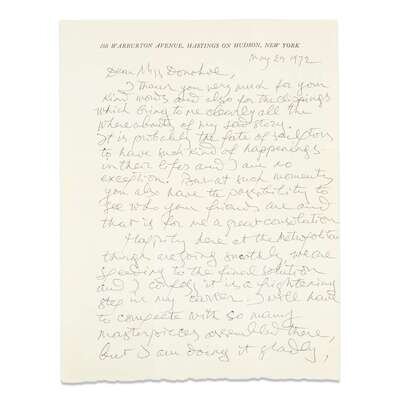 188 WARBURTON AVENUE, HASTINGS ON HUDSON, NEW YORK
May 29 1972
Dear Miss Donohue,
I thank you very much for your
kind words and also for the clippings
which bring to me clearly all the
whereabouts of my sad story.
It is probably the fate of
to have such kind of happenings
in their lifes and I am no
exception. But at such moments
you also have the possibility to
see who your friends are and
that is for me a great consolation
Happily here at the Metropolitan
things are going smoothly we are
speeding to the final solution
and I confess it is a frightening
step in my career. I will have
to compete with so many
masterpieces assembled there,
but I am doing it gladly,